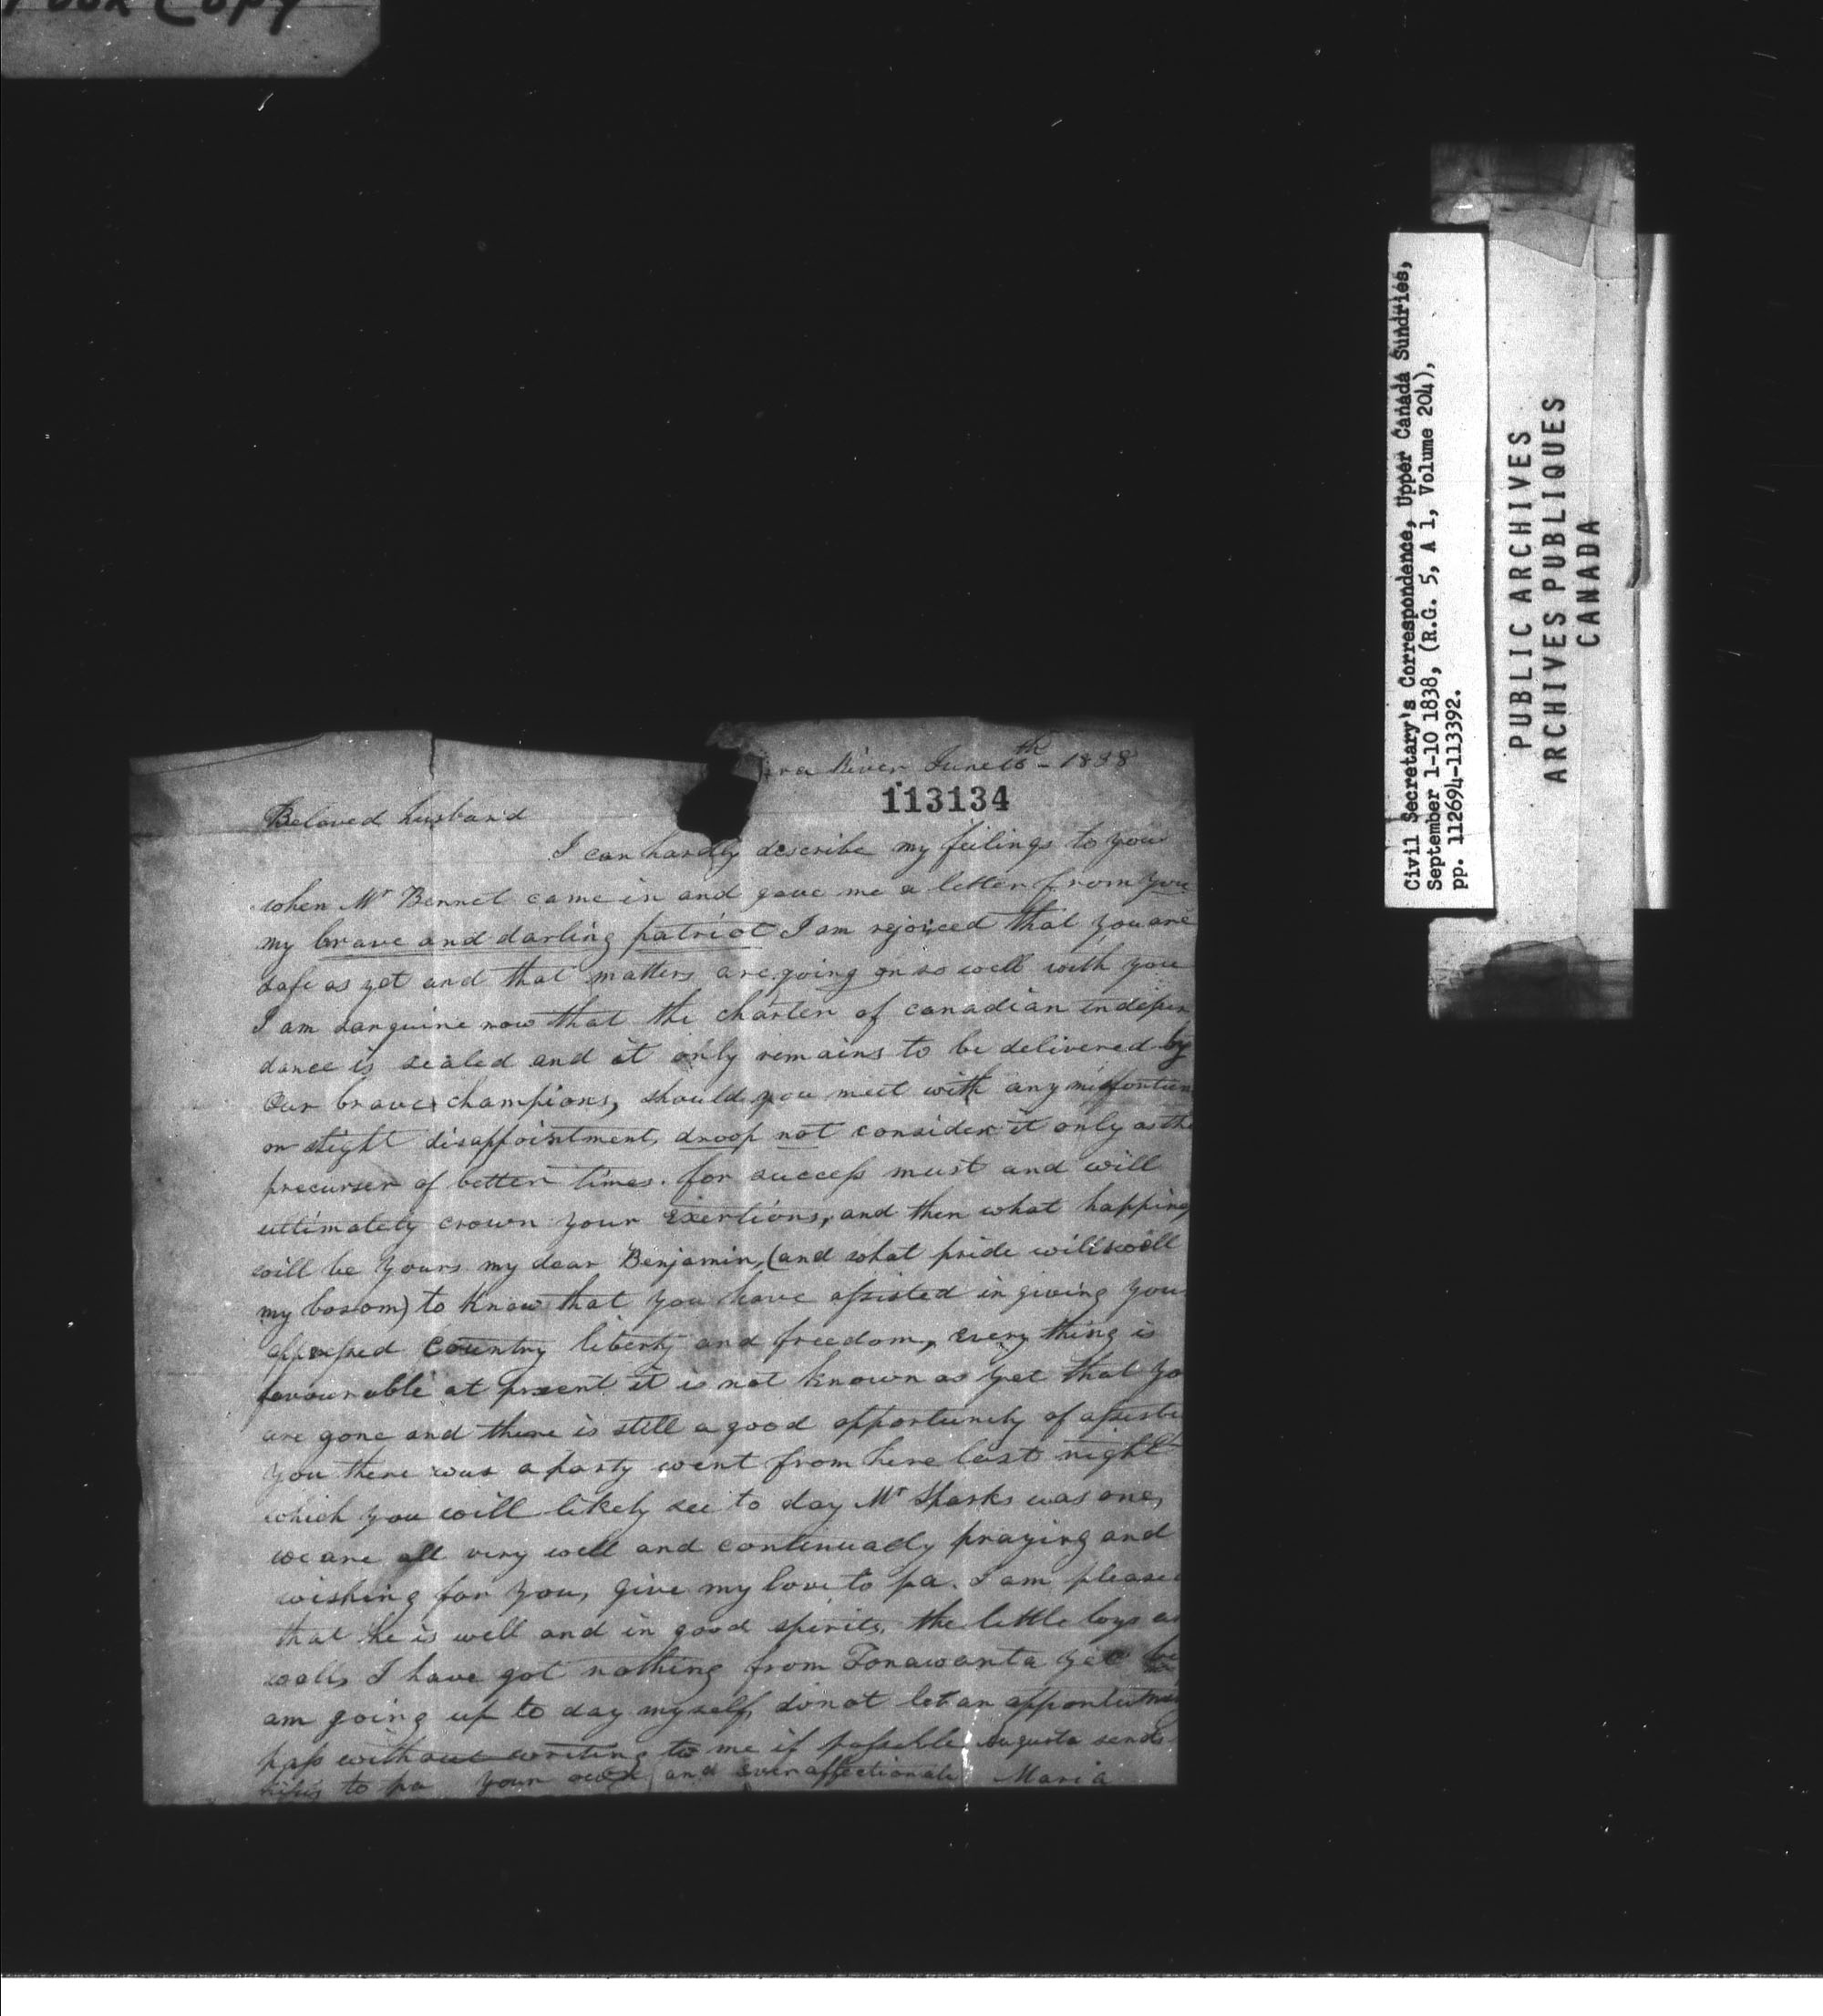 Poor Copy
River June 16th - 1838
113134
Beloved husband
I can hardly describe my feilings to you
when Mr Bennet came in and gave me a letter from you
my brave and darling patriot I am rejoiced that you are
safe as yet and that matters are going on so well with you
I am sanguine now that the charter of canadian indepen
dance is sealed and it only remains to be delivered by
our brave champions, should you meet with any misfortun
or slight disappointment, droop not consider it only as the
precurser of better times. for success must and will
ultimately crown your exertions, and then what happine
will be yours my dear Benjamin, (and what pride will swell
my bosom) to know that you have assisted in giving you
oppressed country liberty and freedom, every thing is
favourable at present it is not known as yet that yo
are gone and there is still a good opportunity of assisti
you there was a party went from here last night
which you will likely see to day Mr Sparks was one,
we are all very well and continually praying and
wishing for you, give my love to pa. I am please
that he is well and in good spirits, the little boys a
well, I have got nothing from Tonawanta yet
am going up to day myself, do not let an
pass without writing to me if possible Augusta sends
to pa your own and ever affectionate Maria
Civil Secretary's Correspondence, Upper Canada Sundries,
September 1-10 1838, (R.G. 5, A 1, Volume 204),
pp. 112694-113392.
PUBLIC ARCHIVES
ARCHIVES PUBLIQUES
CANADA